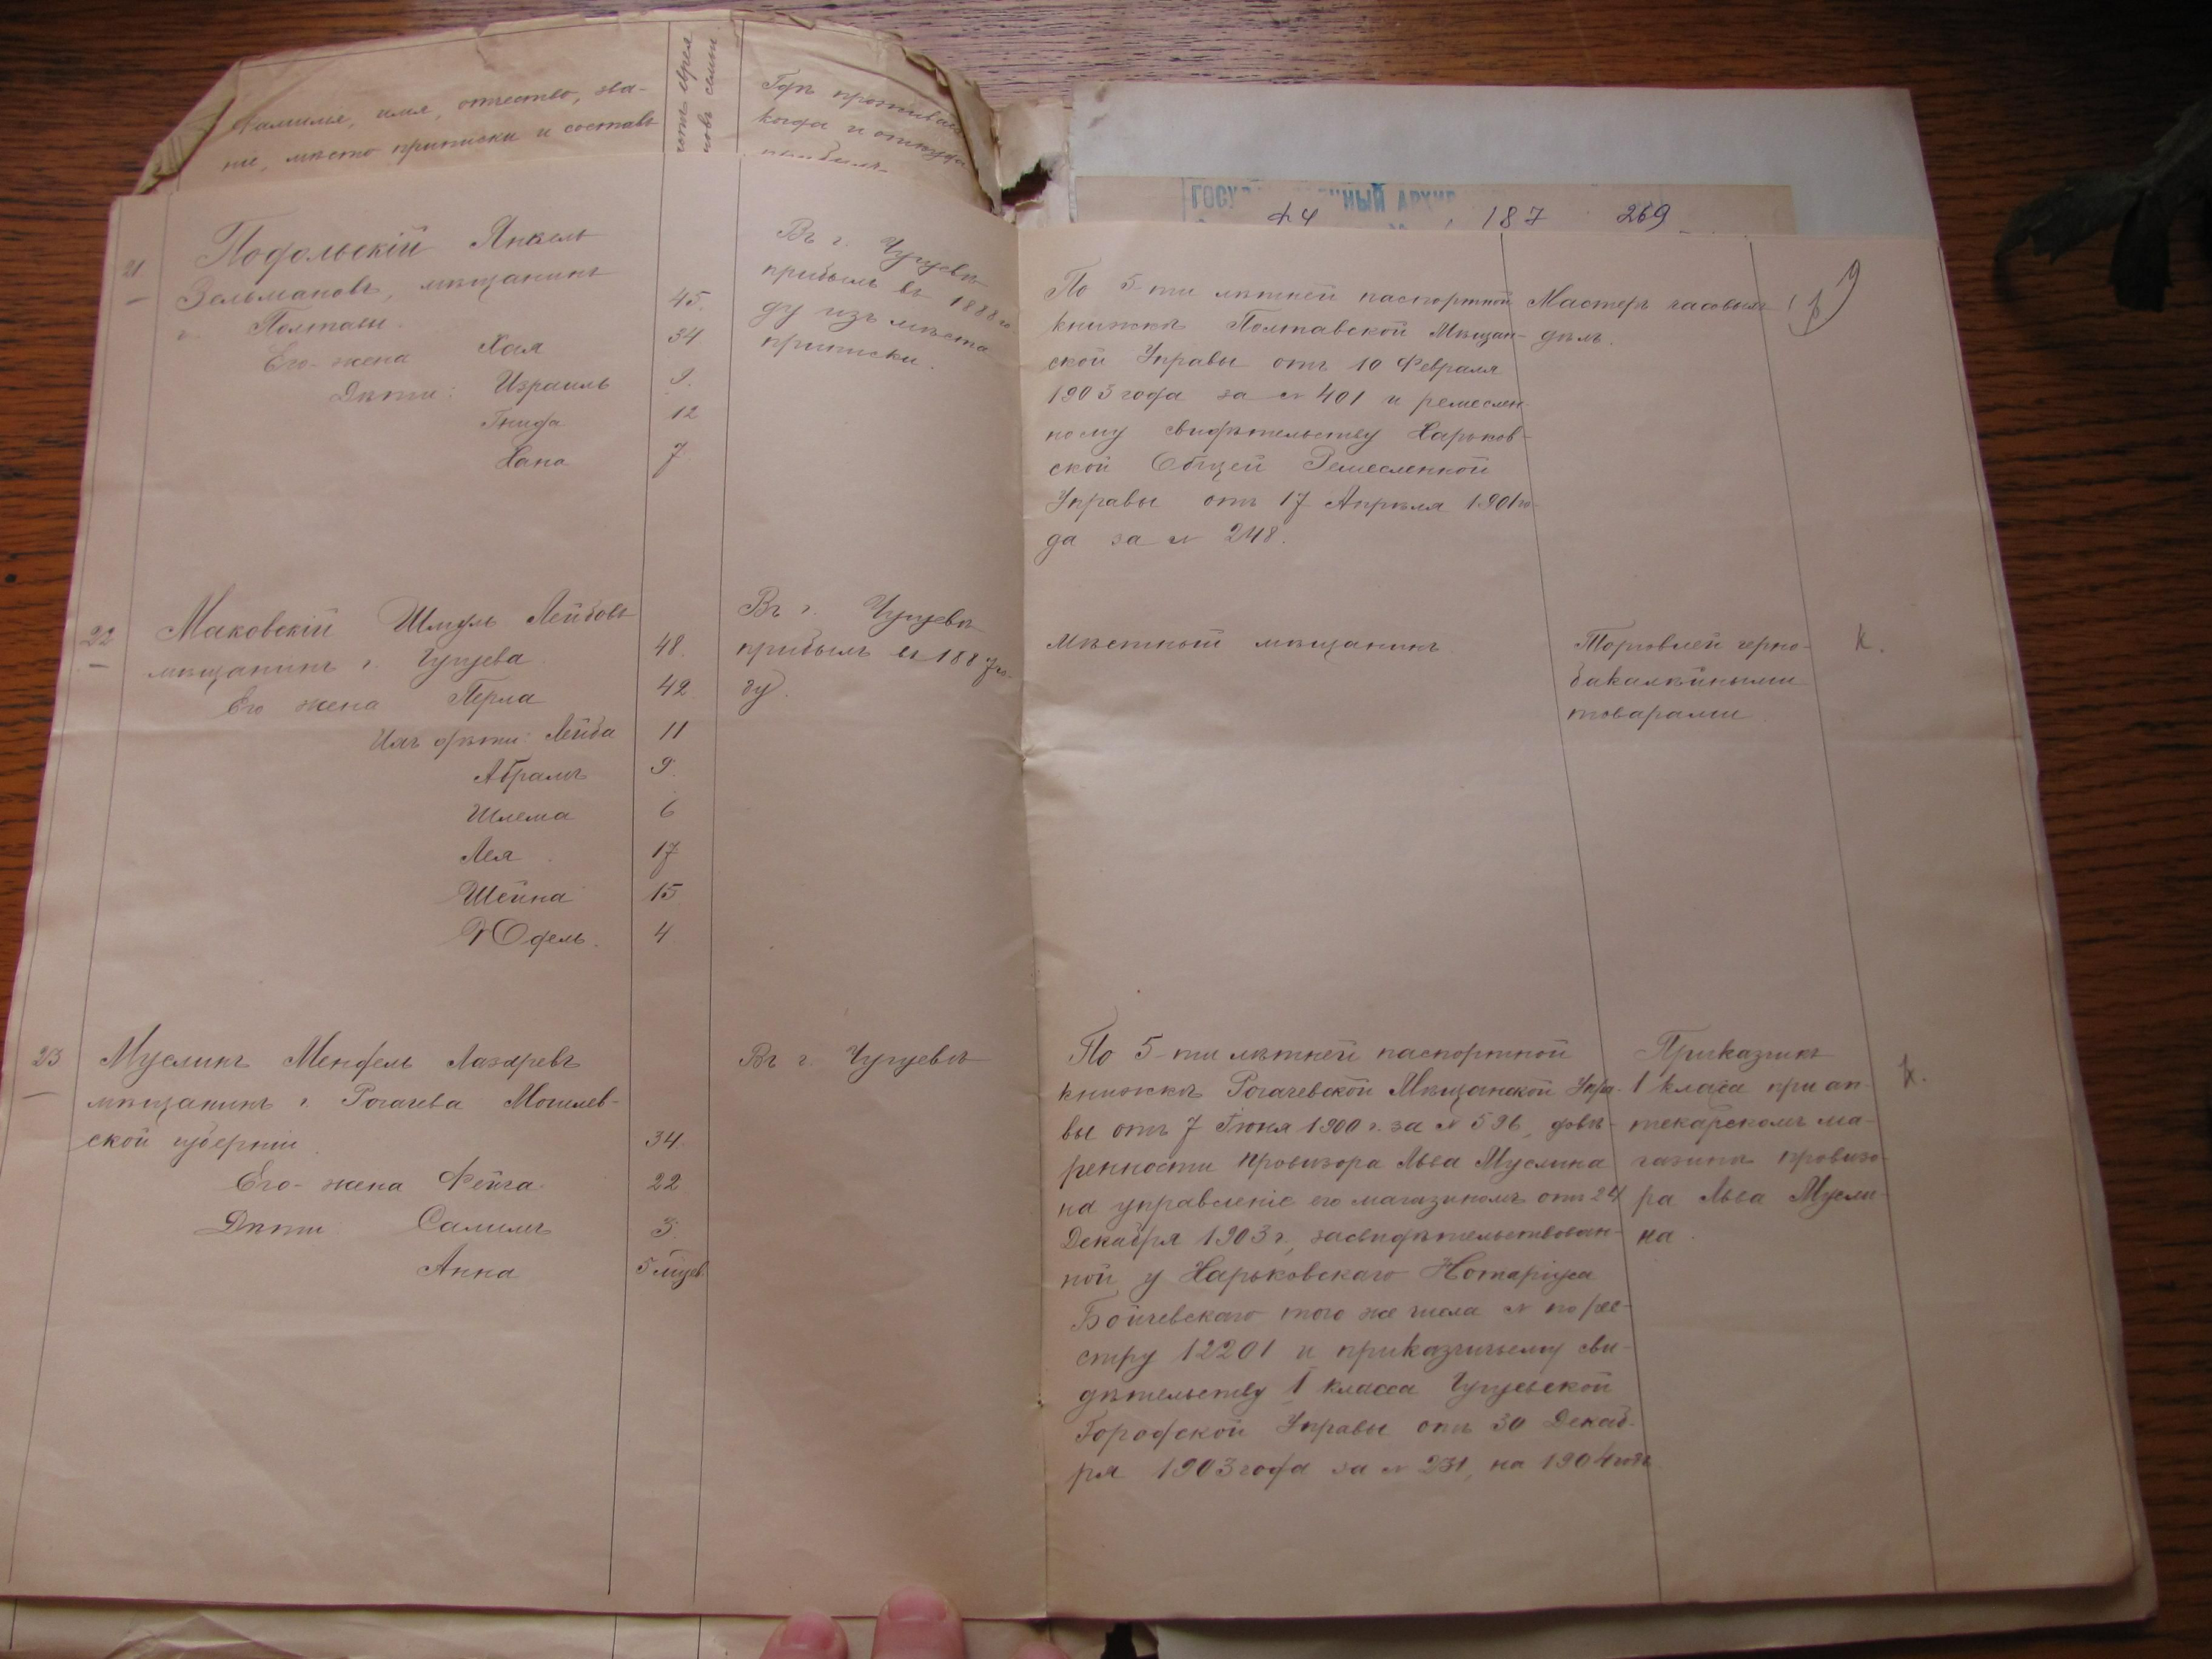 Фамилія, имя, отчество, зва-
ніе, мѣсто приписки и составъ
Гдѣ проживаетъ
когда и откуда
прибылъ
ГОСУ НЫЙ АРХИВ
187 269
9
21
Подольскій Янкель
Зельмановъ, мѣщанинъ
г. Полтавы.
45.
Его-жена Хая
34
Дѣти: Израиль
9.
Гнида
12
Хана
7
Въ г. Чугуевъ
прибылъ въ 1888 го-
ду изъ мѣста
приписки.
По 5-ти лѣтней паспортной
книжкѣ Полтавской Мѣщан-
ской Управы отъ 10 Февраля
1903 года за № 401 и ремеслен-
ному свидѣтельству Харьков-
ской Общей Ремесленной
Управы отъ 17 Апрѣля 1901 го-
да за № 248.
Мастеръ часовыхъ
дѣлъ.
22
Маковскій Шмуль Лейбовъ
мѣщанинъ г. Чугуева
48.
Его жена Перла
42
Ихъ дѣти: Лейба
11
Абрамъ
9.
Шлема
6
Лея
17
Шейна
15
Юдель.
4
Въ г. Чугуевъ
прибылъ въ 1887 го-
ду.
Мѣстный мѣщанинъ.
Торговлей черно-
бакалейными
товарами
к.
23
Муслинъ Мендель Лазаревъ
мѣщанинъ г. Рогачева Могилев-
ской губерніи.
34.
Его-жена Фейга
22
Дѣти Салимъ
3.
Анна
5 мѣсев.
Въ г. Чугуевѣ
По 5-ти лѣтней паспортной
книжкѣ Рогачевской Мѣщанской Упра-
вы отъ 7 Іюня 1900 г. за № 596, довѣ-
ренности провизора Льва Муслина
на управленіе его магазиномъ отъ 24
Декабря 1903 г., засвидѣтельствован-
ной у Харьковскаго Нотаріуса
Бойчевскаго того же числа № по рее-
стру 12201 и приказчичьему сви-
дѣтельству 1 класса Чугуевской
Городской Управы отъ 30 Декаб-
ря 1903 года за № 231, на 1904 годъ
Приказчикъ
1 класса при ап-
текарскомъ ма-
газинѣ провизо-
ра Льва Мусли-
на.
к.